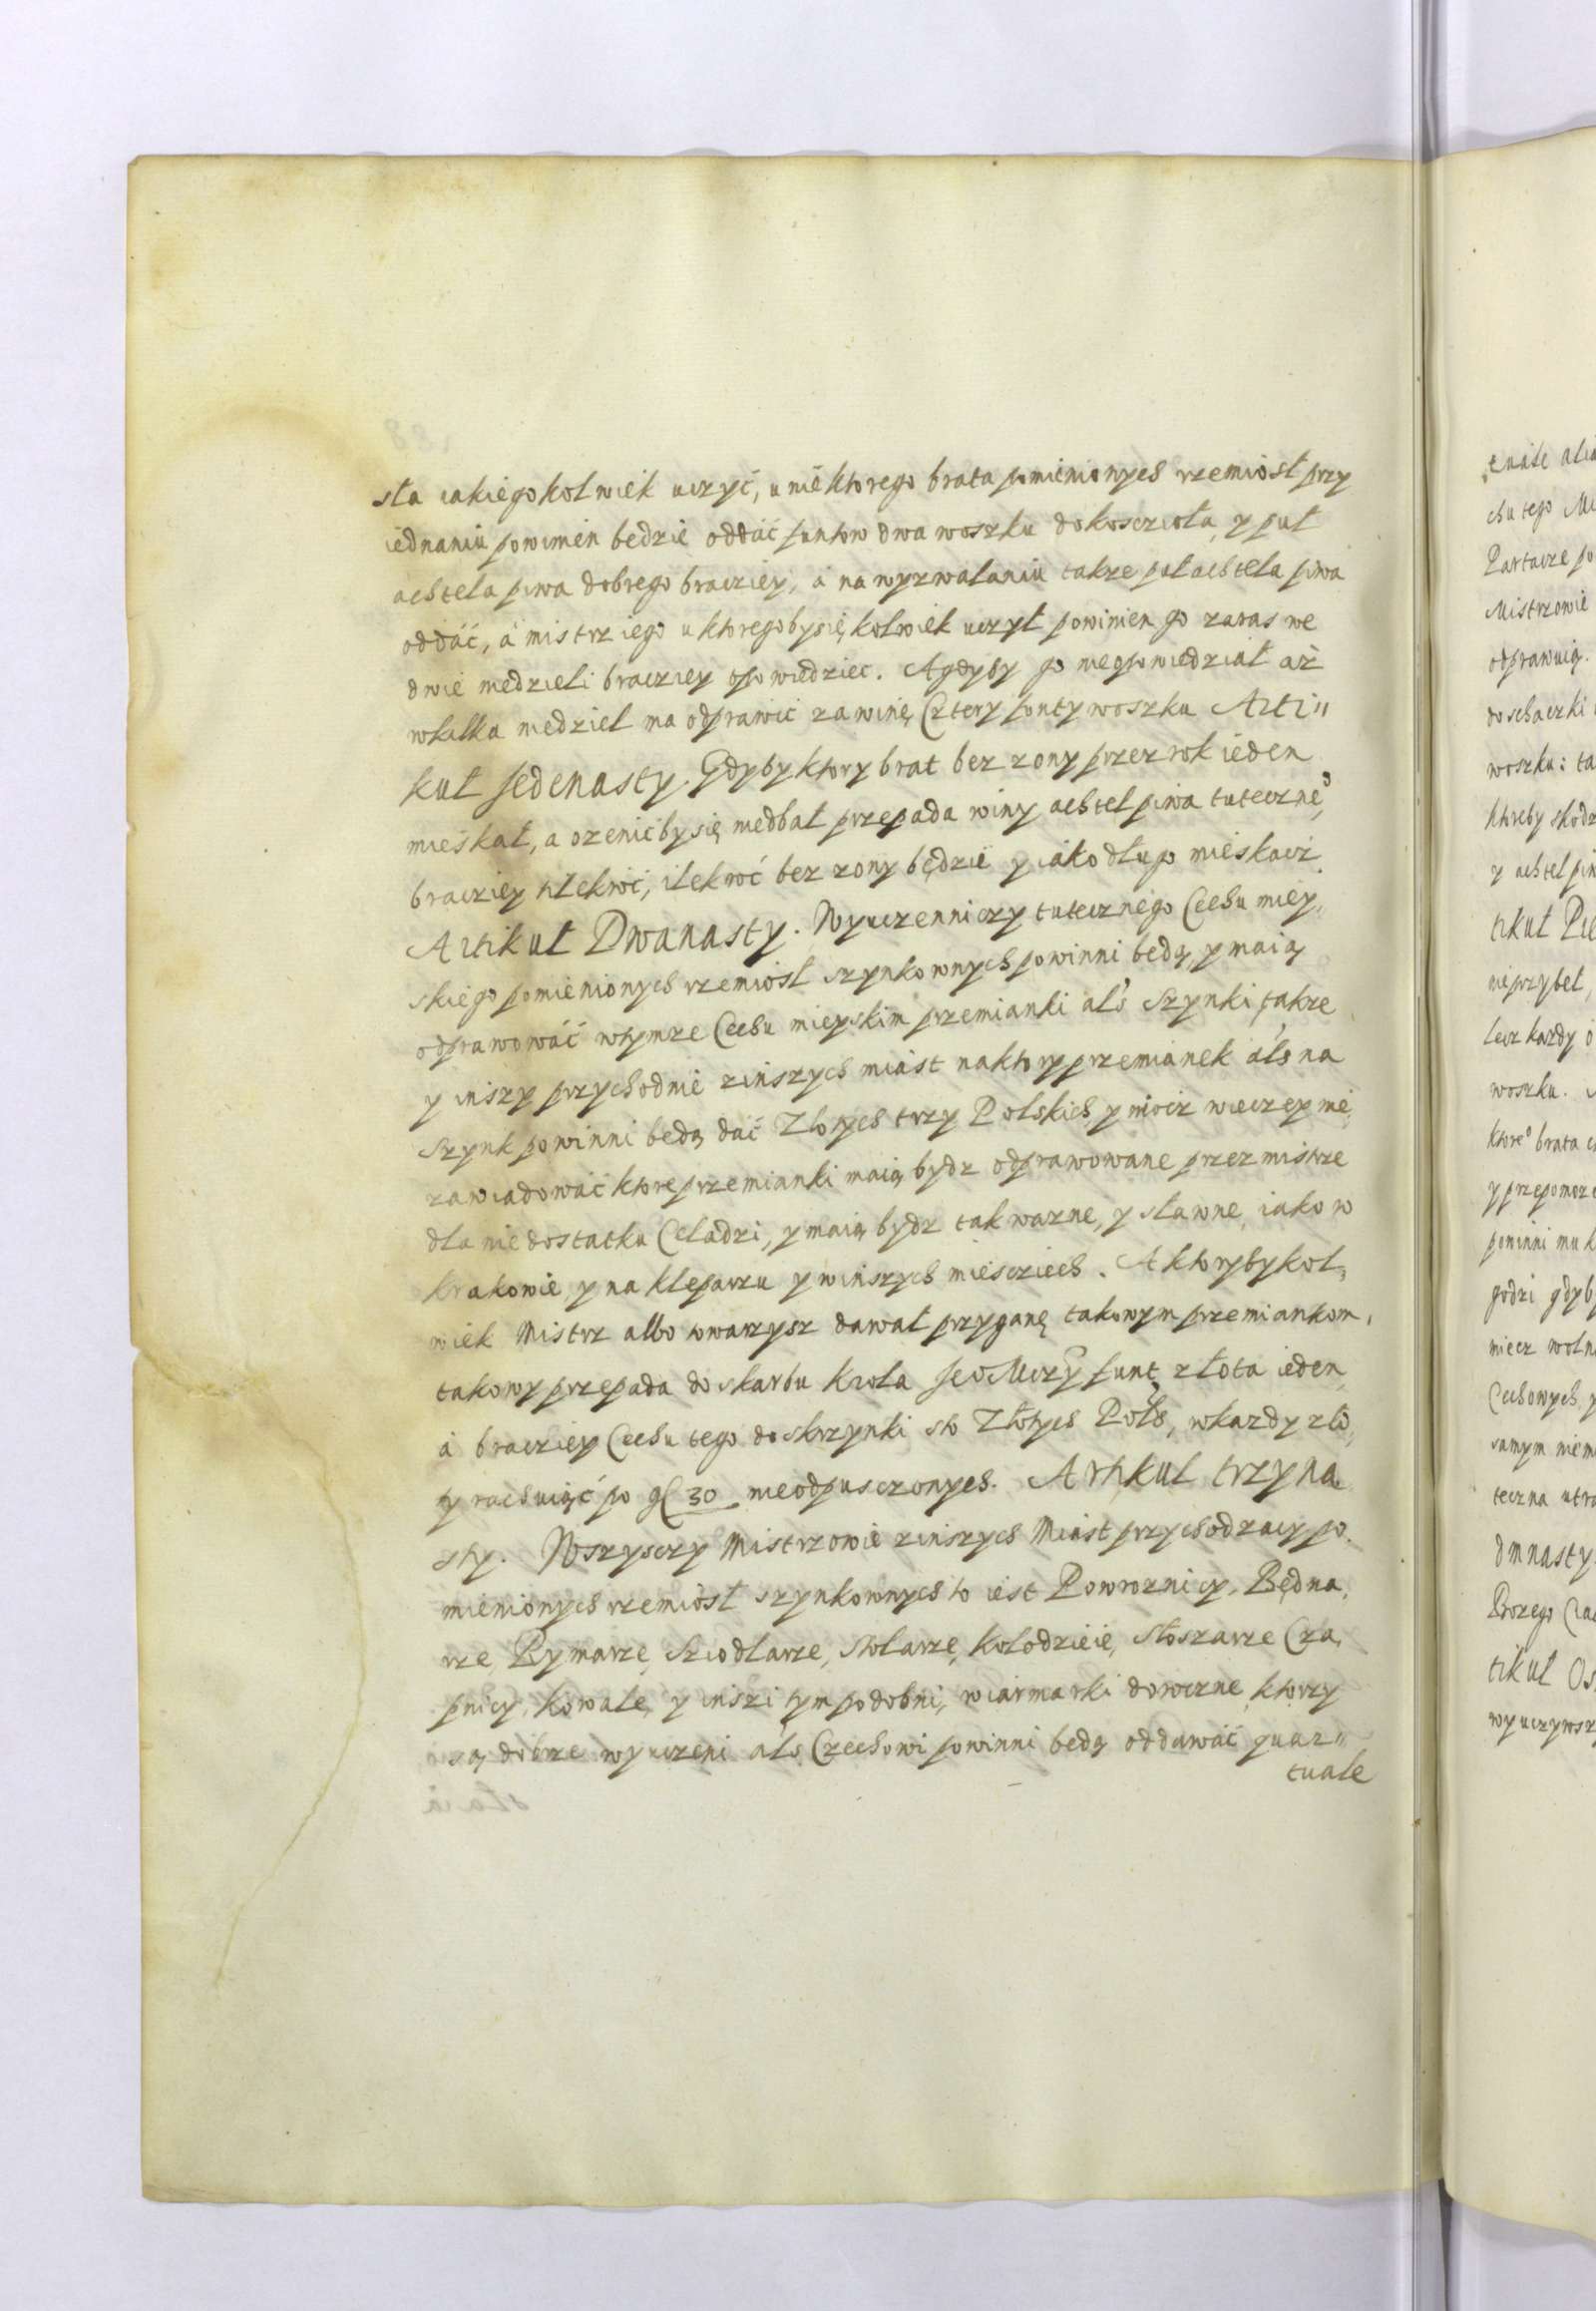 sła iakiegokolwiek uczyć, u niektorego brata pomienionych rzemiosł przy
iednaniu powinien bedzie oddać funtow dwa woszku do kosczioła, y puł
achtela piwa dobrego bracziey, á na wyzwalaniu takze puł achtela piwa
oddáć, á mistrz iego u ktoregoby się kolwiek uczył powinien go zaras we
dwie niedzieli bracziey opowiedziec. A gdyby go nie opowiedział aż
w kilka niedziel ma odprawić za winę Cztery fonty woszku Arti"
kuł Jedenasty. Gdyby ktory brat bez zony przez rok ieden
mieśkał, a ozenić by się niedbał przepada winy achtel piwa tuteczne°
bracziey tilekroć, ilekroć bez zony będzie y iáko długo mieskacz
Artikuł Dwanasty. Wyuczenniczy tutecznego Cechu miey,
skiego pomienionych rzemiosł szynkownych powinni będą, y maią
odprawowáć w tymze Cechu mieyskim przemianki als Szynki, takze
y inszy przychodnie z inszych miást na ktory przemianek als na
Szynk powinni bedą dać Złotych trzy Polskich y niocz wieczey nie
zawiadowáć ktore przemianki maią bydz odprawowane przez mistrze
dla niedostatku Celadzi, y maią bydz tak wazne, y sławne, iako w
krakowie, y na kleparzu y w inszych miesciech. A ktorybykol,
wiek Mistrz albo towarzysz dawał przyganę takowym przemiankom,
takowy przepada do skarbu krola Jeo Mczy funt złota ieden
á bracziey Cechu tego do skrzynki sto Złotych Pols, w kazdy zło,
ty rachuiąć po g 30 nieodpusczonych. Artikuł trzyna
sty. Wszysczy Mistrzowie z inszych Miást przychodzacy po,
mienionych rzemiosł szynkownych to iest Powroznicy, Będna,
rze, Rymarze, Sziodlarze, Stolarze, kołodzieie, Słoszarze Cza,
pnicy, kowale, y inszi tym podobni, w iármarki doroczne, ktorzy
są dobrze wyuczeni als Czechowi powinni bedą oddawáć quar"
tuałe